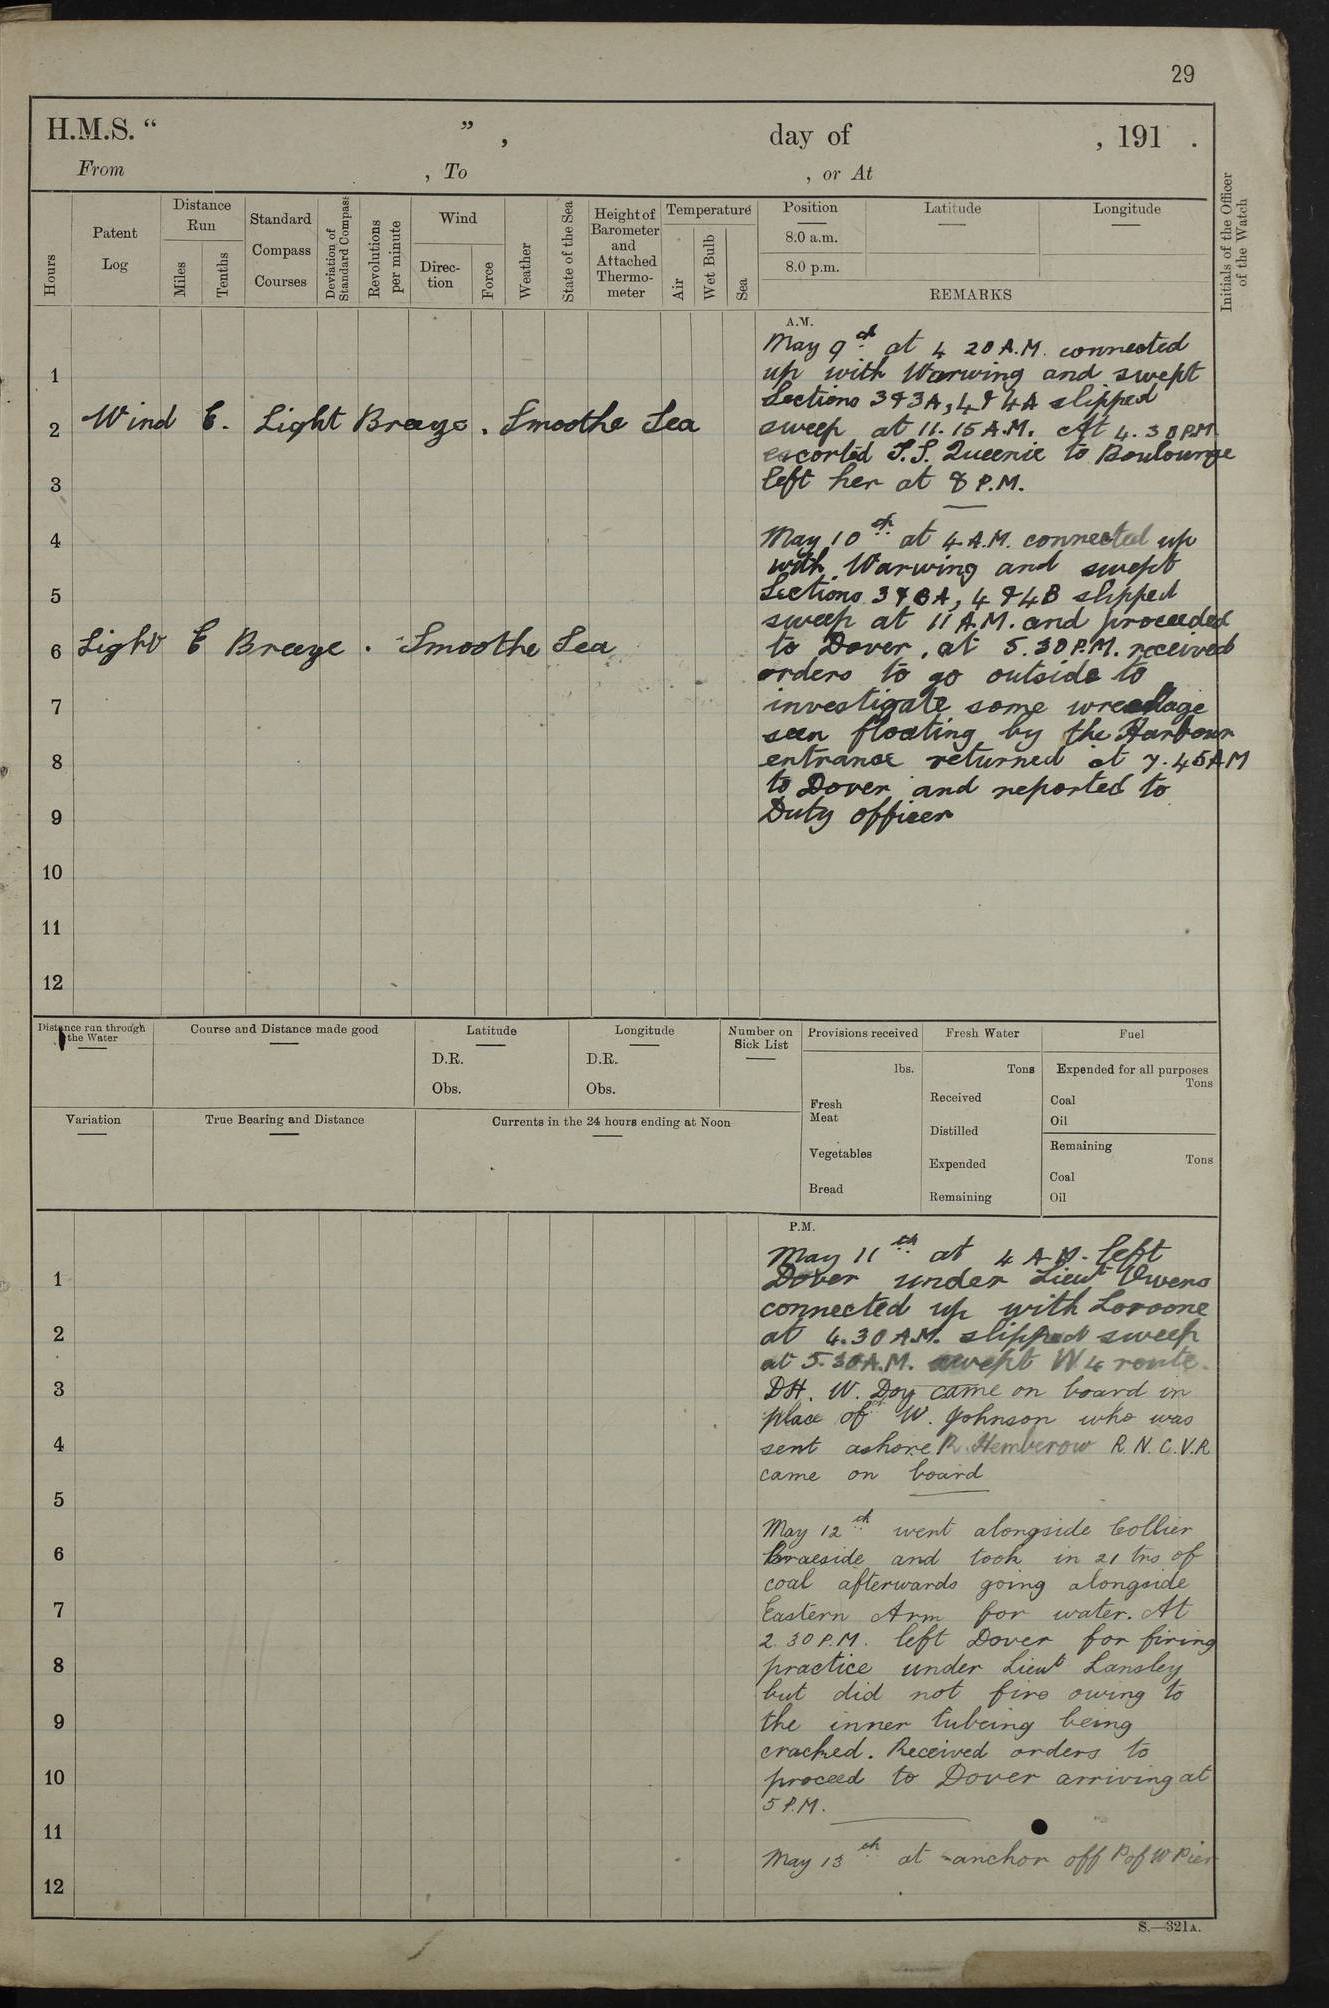 29
H.M.S. “ ”, day of , 191 .
From , To , or At
Hours
Patent Log
Distance Run
Miles
Tenths
Standard Compass Courses
Deviation of Standard Compass
Revolutions per minute
Wind
Direc-tion
Force
Weather
State of the Sea
Height of Barometer and Attached Thermo-meter
Temperature
Air
Wet Bulb
Sea
Position
8.0 a.m.
8.0 p.m.
Latitude
Longitude
REMARKS
Initials of the Officer of the Watch
A.M.
1
2
3
4
5
6
7
8
9
10
11
12
Wind E. Light Breeze. Smoothe Sea
Light E Breeze. Smoothe Sea
May 9th at 4 20 A.M. connected
up with Warwing and swept
Sections 3 & 3A, 4 & 4A slipped
sweep at 11.15 A.M. At 4.30 P.M.
escorted S.S. Queenie to Boulounge
left her at 8 P.M.
May 10th at 4 A.M. connected up
with Warwing and swept
Sections 3 & 3A, 4 & 4B slipped
sweep at 11 A.M. and proceeded
to Dover, at 5.30 P.M. received
orders to go outside to
investigate some wreckage
seen floating by the Harbour
entrance returned at 7.45 AM
to Dover and reported to
Duty officer
Distance run through the Water
Course and Distance made good
Latitude
D.R.
Obs.
Longitude
D.R.
Obs.
Number on Sick List
Provisions received
lbs.
Fresh Meat
Vegetables
Bread
Fresh Water
Tons
Received
Distilled
Expended
Remaining
Fuel
Expended for all purposes
Tons
Coal
Oil
Remaining
Tons
Coal
Oil
Variation
True Bearing and Distance
Currents in the 24 hours ending at Noon
P.M.
1
2
3
4
5
6
7
8
9
10
11
12
May 11th at 4 A.M. left
Dover under Lieut Vivers
connected up with Loroone
at 4.30 A.M. slipped sweep
at 5.30 A.M. swept W 4 route.
DH. W. Doy came on board in
place of W. Johnson who was
sent ashore R. Hemberow R.N.C.V.R
came on board
May 12th went alongside Collier
Braeside and took in 21 tns of
coal afterwards going alongside
Eastern Arm for water. At
2.30 P.M. left Dover for firing
practice under Lieut Lansley
but did not fire owing to
the inner tubeing being
cracked. Received orders to
proceed to Dover arriving at
5 P.M.
May 13th at anchor off P of W Pier
S.—321A.